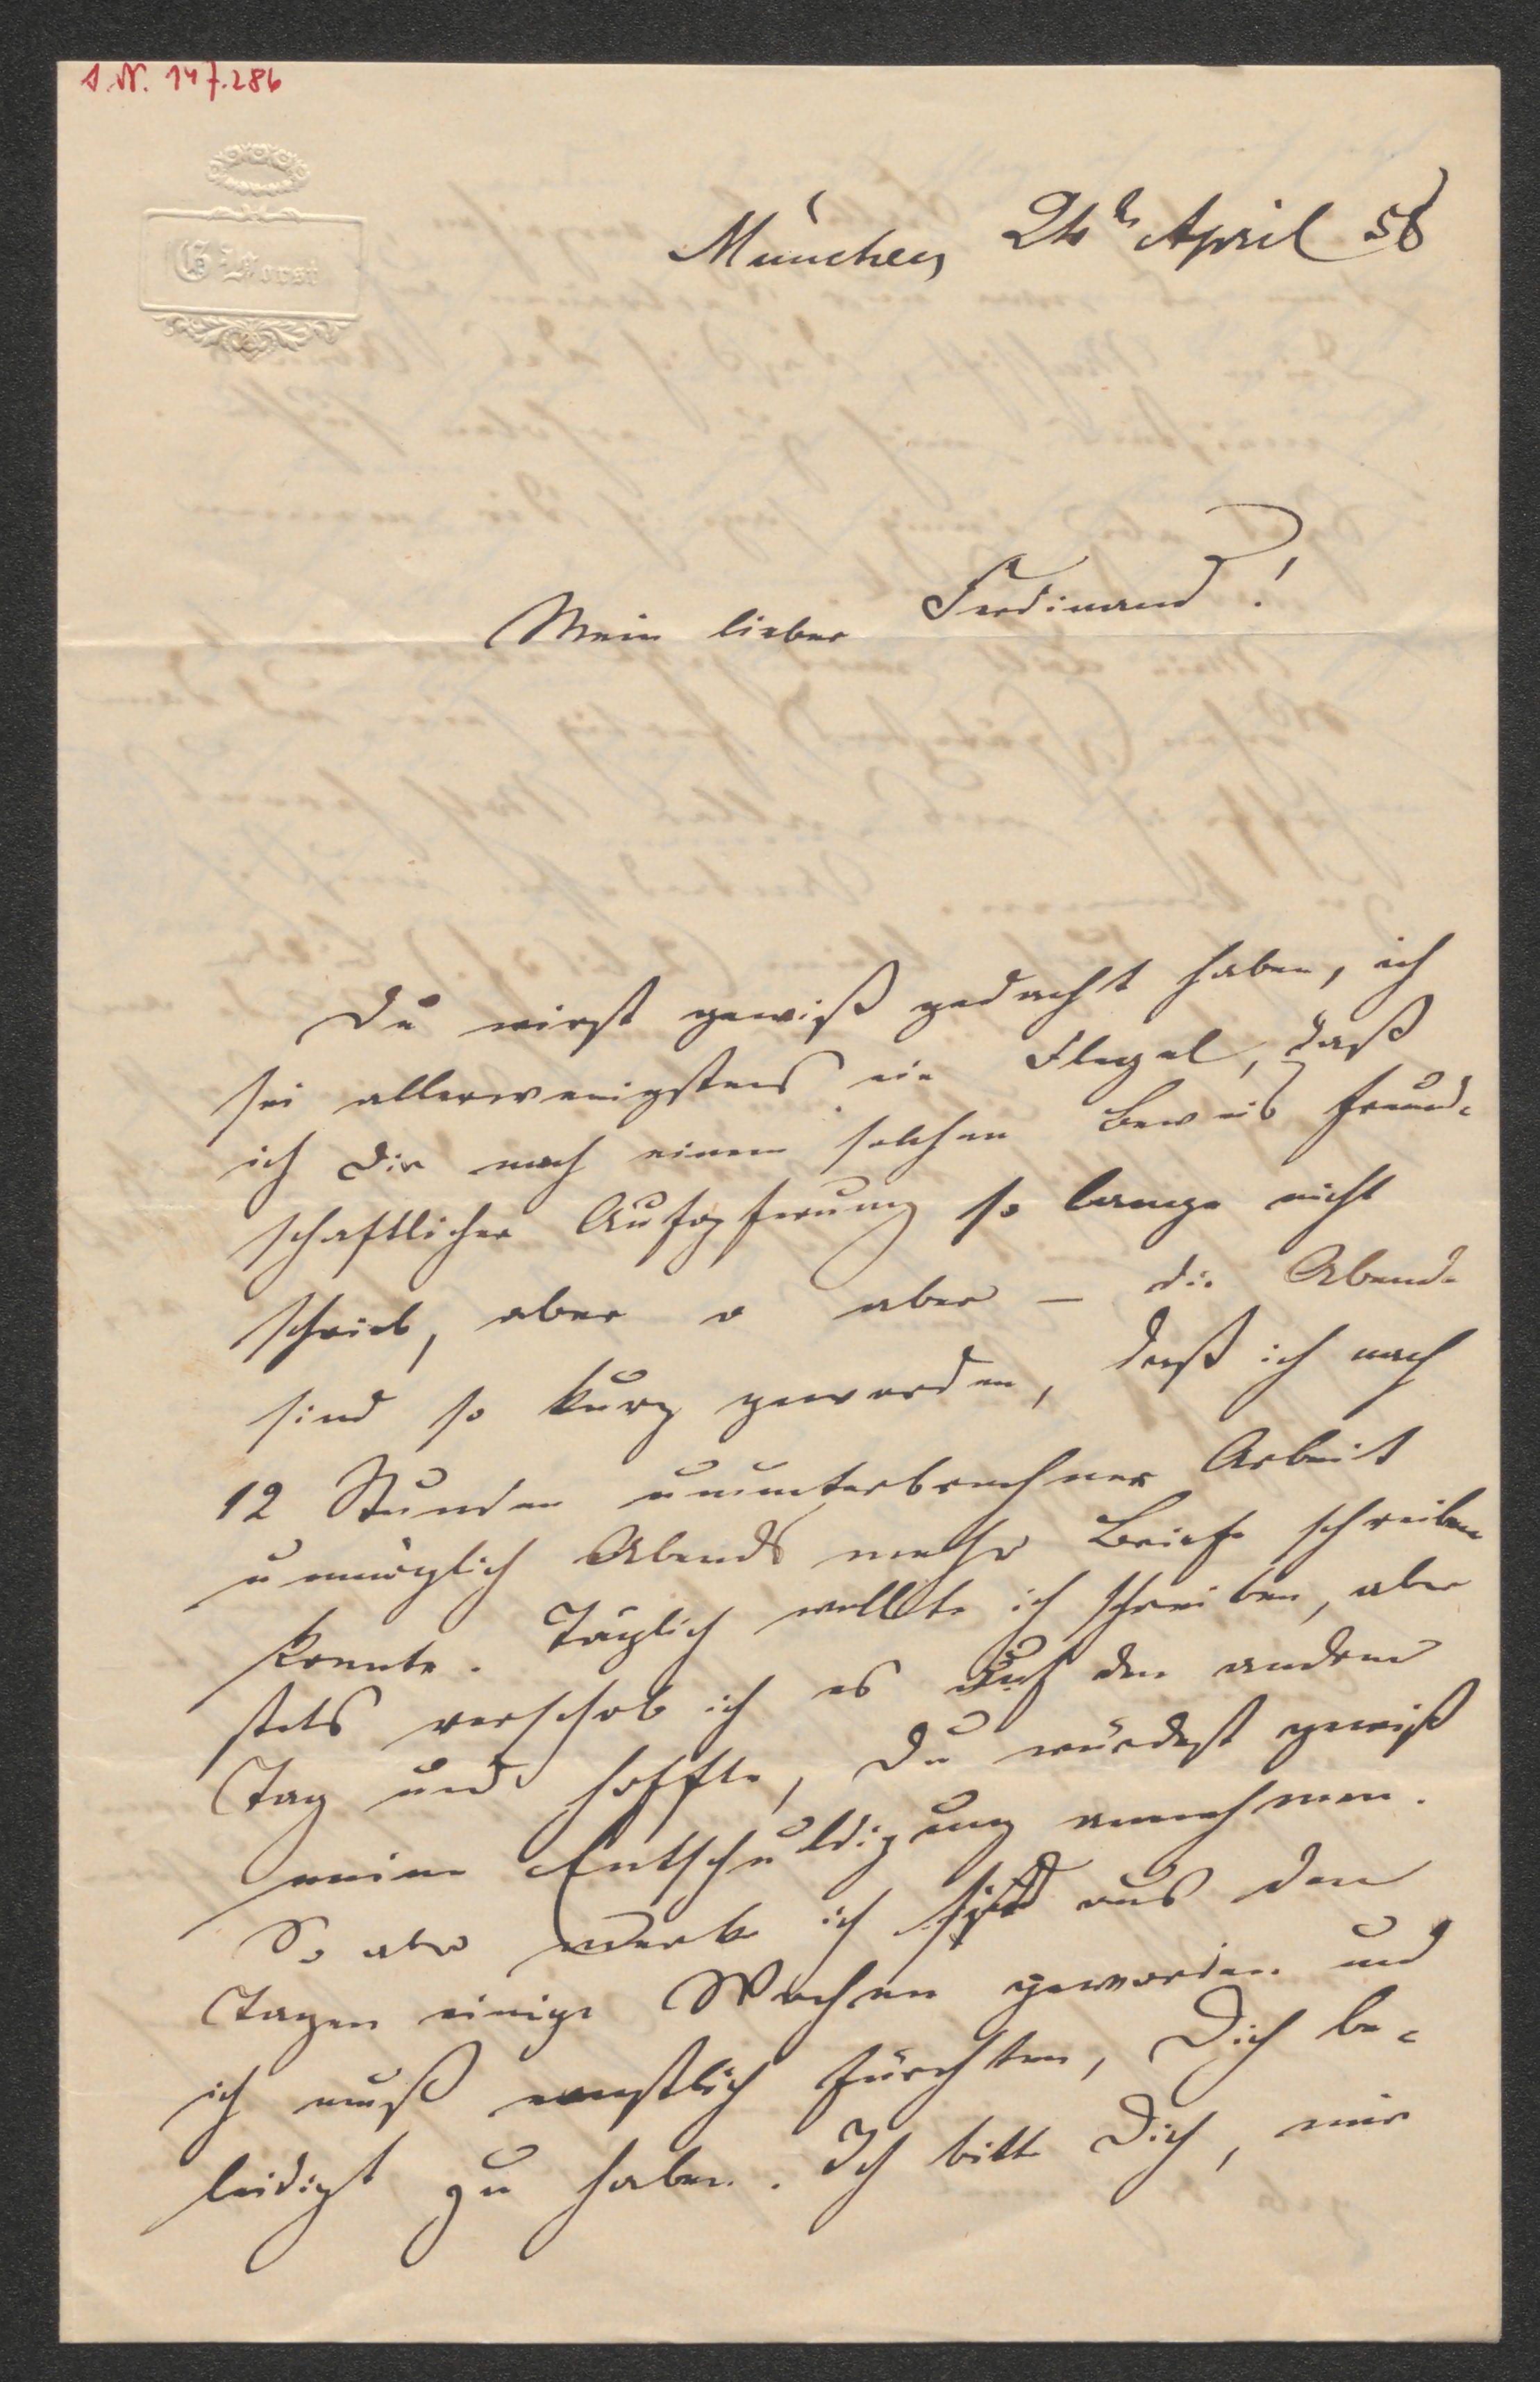 I. N. 147.286
München 24t April 58
Mein lieber Ferdinand!
Du wirst gewiß gedacht haben, ich
sei allerwenigstens ein Flegel, daß
ich Dir nach einem solchen Beweis freund-
schaftlicher Aufopferung so lange nicht
schrieb, aber o aber — die Abende
sind so kurz geworden, daß ich nach
12 Stunden ununterbrochner Arbeit
unmöglich Abends mehr Briefe schreiben
konnte. Täglich wollte ich schreiben, aber
stets verschob ich es auf den andern
Tag und hoffte, Du würdest gewiß
meine Entschuldigung annehmen.
So aber merke ich sind aus den
Tagen einige Wochen geworden und
ich muß ernstlich fürchten, Dich be-
leidigt zu haben. Ich bitte Dich, mir